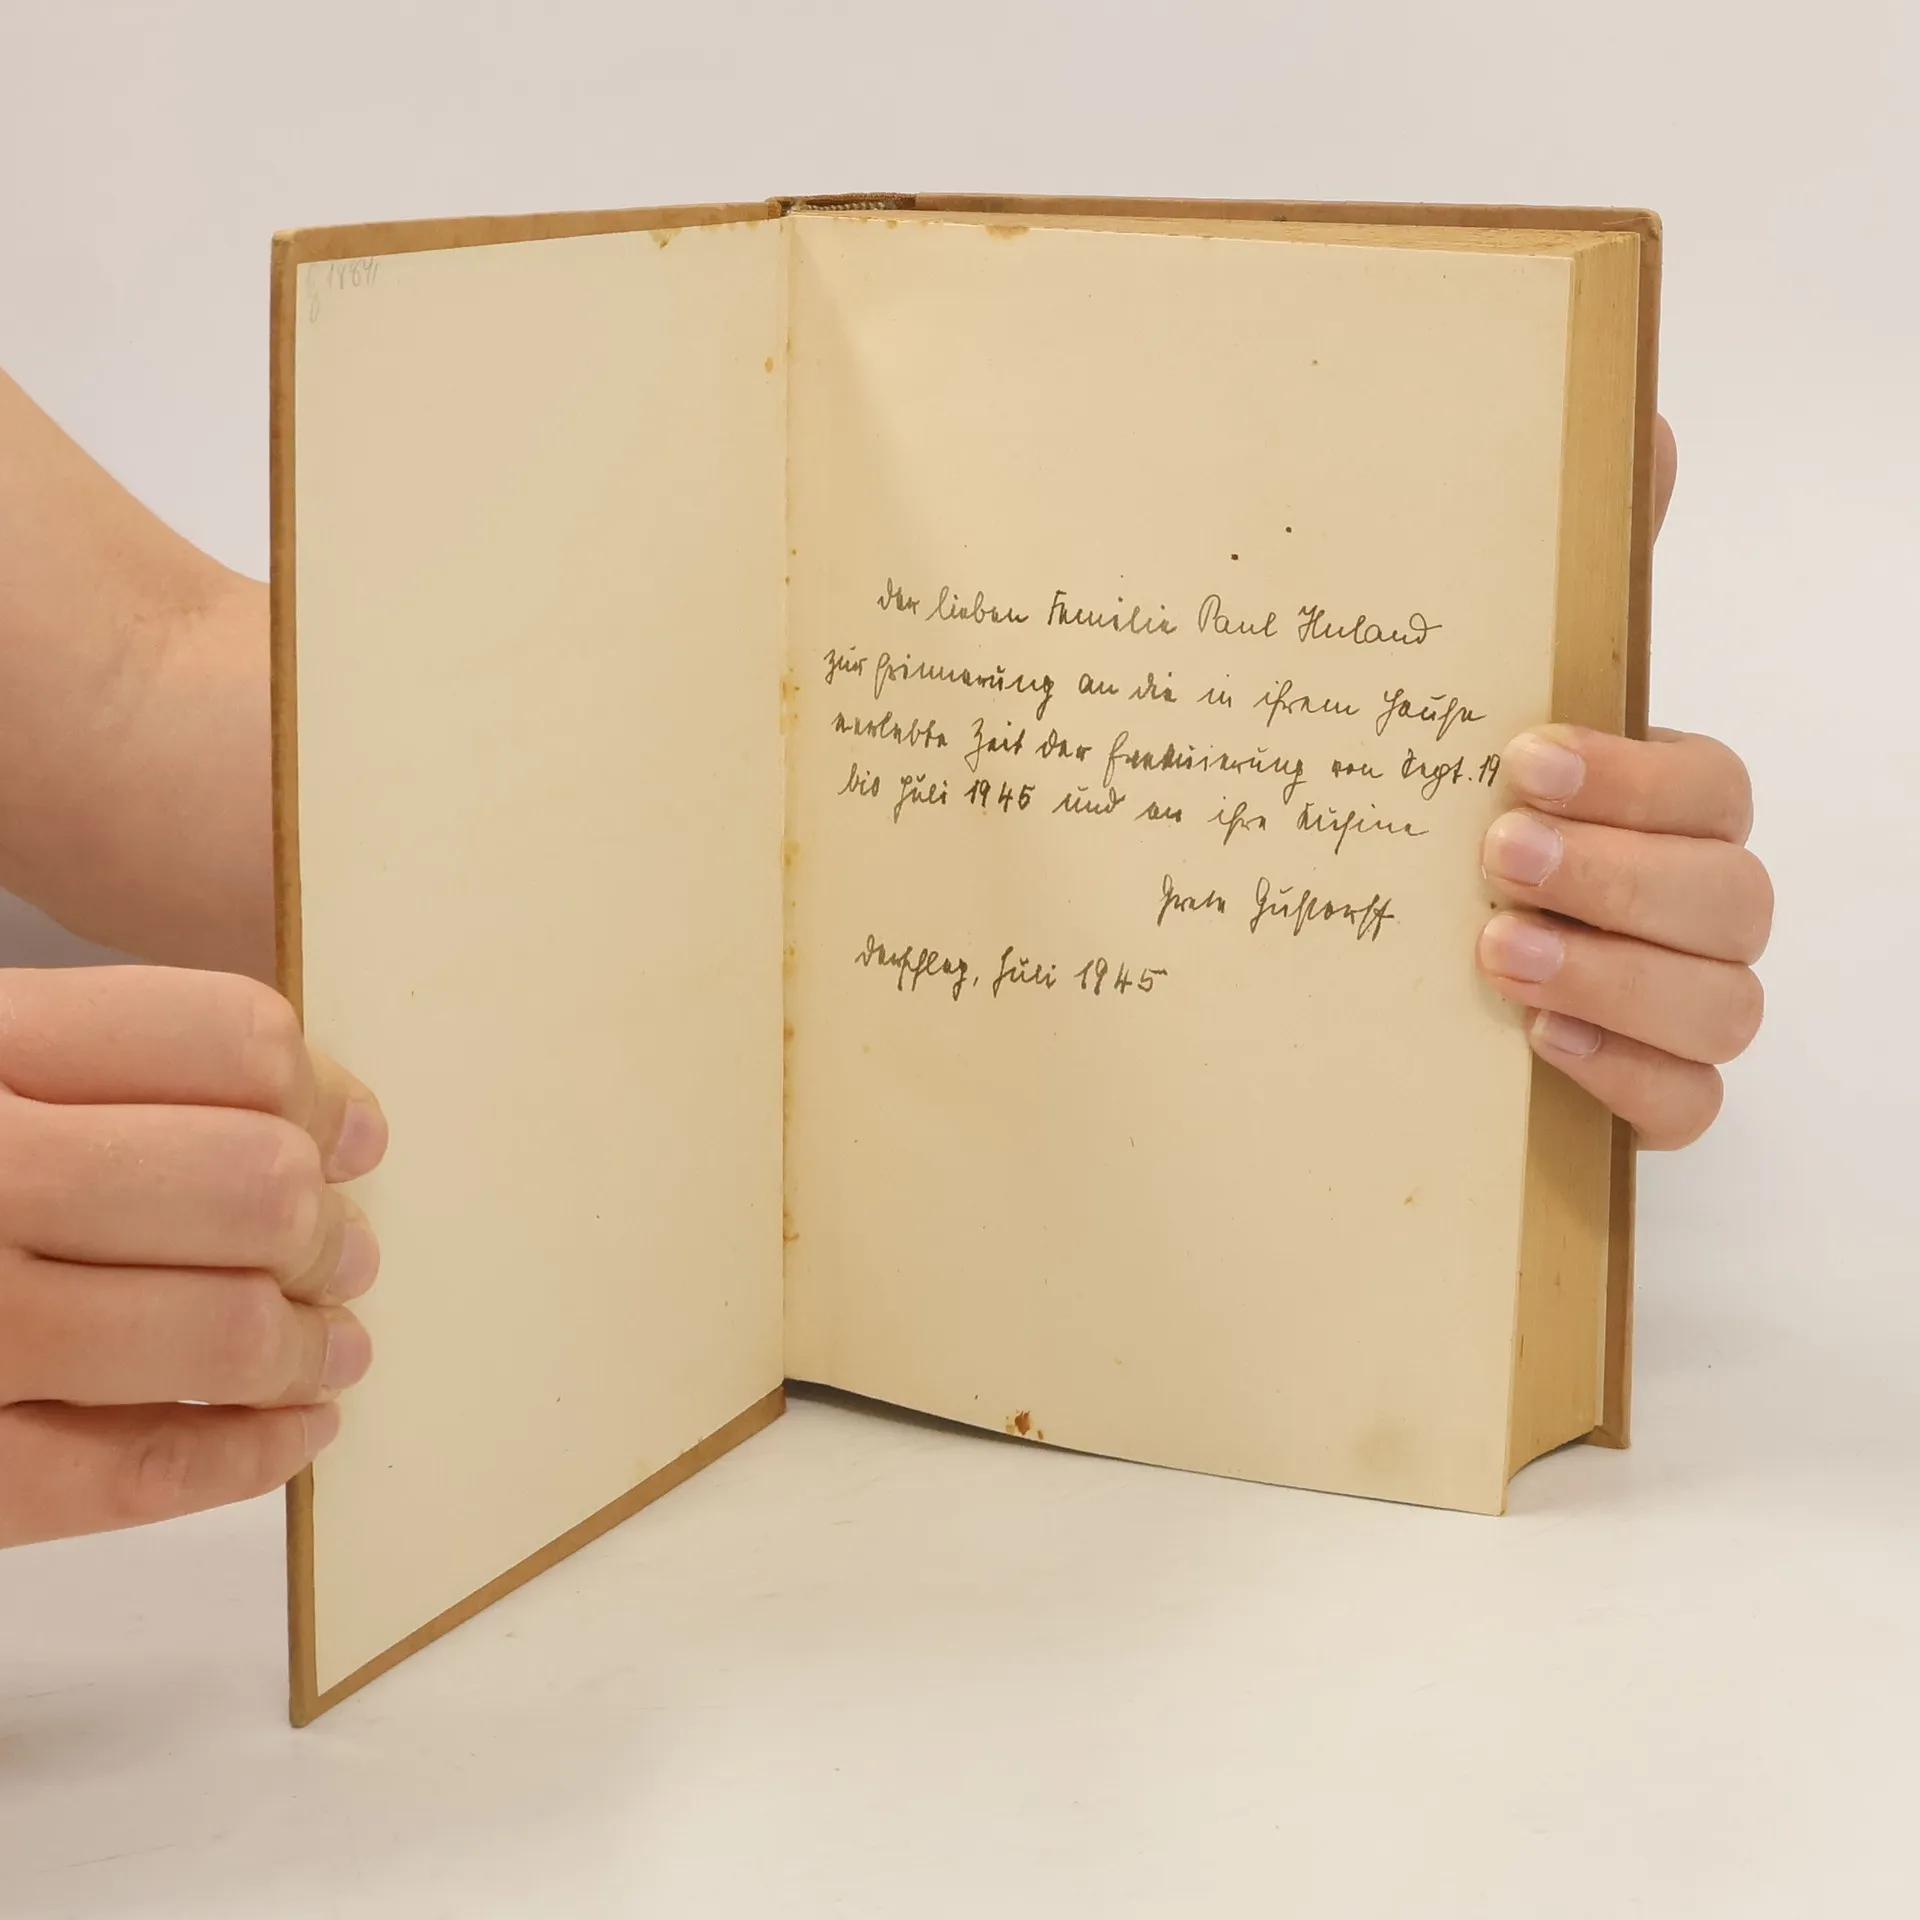 1884
der lieben Familie Paul Huland
zur Erinnerung an die in ihrem Hause
verlebte Zeit der Evakuierung von Sept. 19
bis Juli 1945 und an ihre Kusine
Grete Gustorff.
Derschlag, Juli 1945